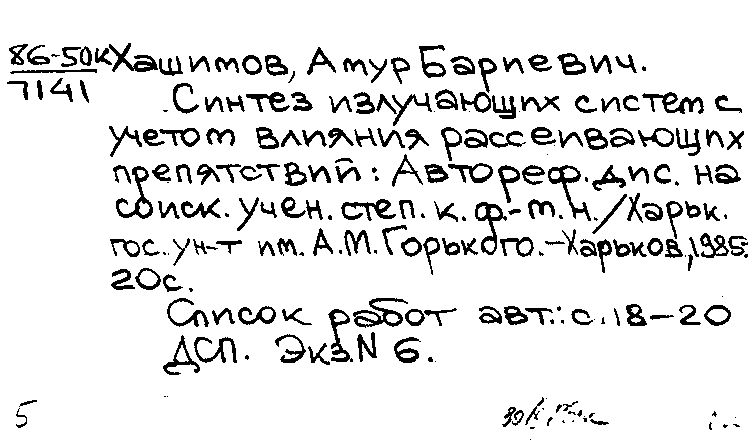 86-50к Хашимов, Амур Бариевич.
7141
Синтез излучающих систем с
учетом влияния рассеивающих
препятствий: Автореф. дис. на
соиск. учен. степ. к. ф.-м. н./Харьк.
гос. ун-т им. А.М. Горького.-Харьков, 1985.
20с.
Список работ авт.: с. 18-20
ДСП. Экз. N 6.
5